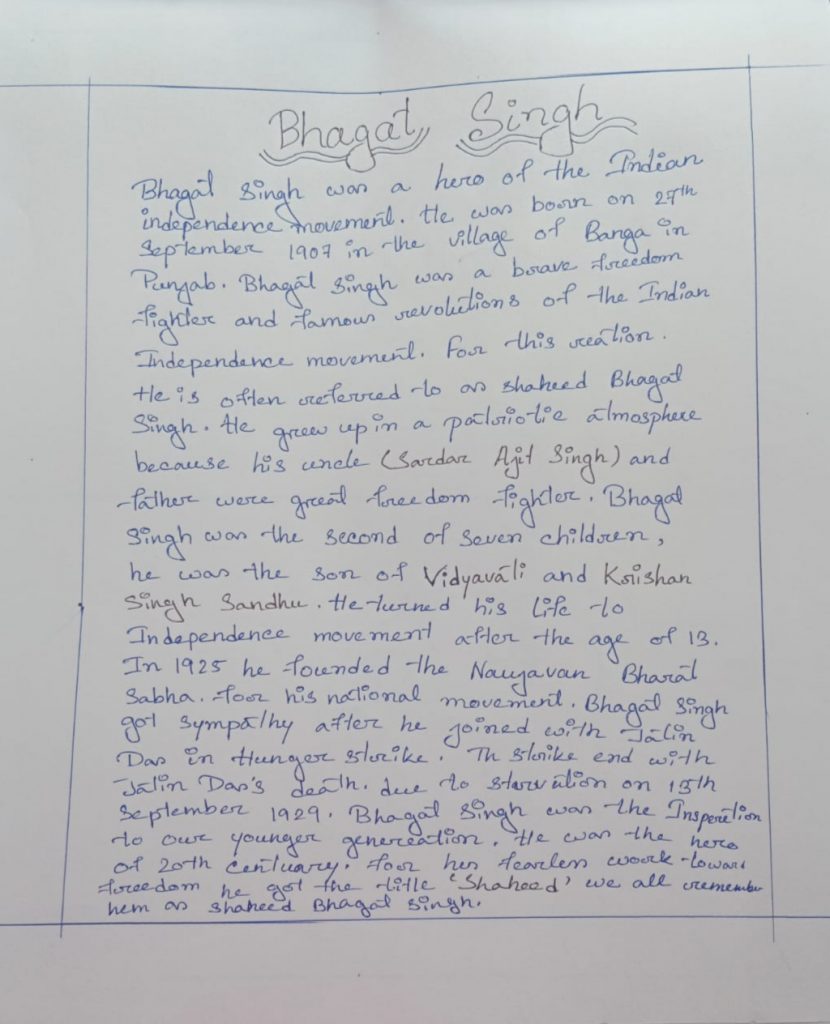 Bhagat Singh
Bhagat Singh was a hero of the Indian
independence movement. He was born on 27th
September 1907 in the village of Banga in
Punjab. Bhagat Singh was a brave freedom
fighter and famous revolutions of the Indian
Independence movement. For this reation.
He is often referred to as shaheed Bhagat
Singh. He grew up in a patriotic atmosphere
because his uncle (Sardar Ajit Singh) and
father were great freedom fighter. Bhagat
Singh was the second of seven children,
he was the son of Vidyavati and Krishan
Singh Sandhu. He turned his life to
Independence movement after the age of 13.
In 1925 he founded the Naujavan Bharat
Sabha. for his national movement. Bhagat Singh
got sympathy after he joined with Jatin
Das in Hunger strike. Th strike end with
Jatin Das's death. due to starvution on 15th
September 1929. Bhagat Singh was the Insperetion
to our younger genereation. He was the hero
of 20th Centuary. for her fearless work toward
freedom he got the title 'Shaheed' we all remember
hem as shaheed Bhagat Singh.